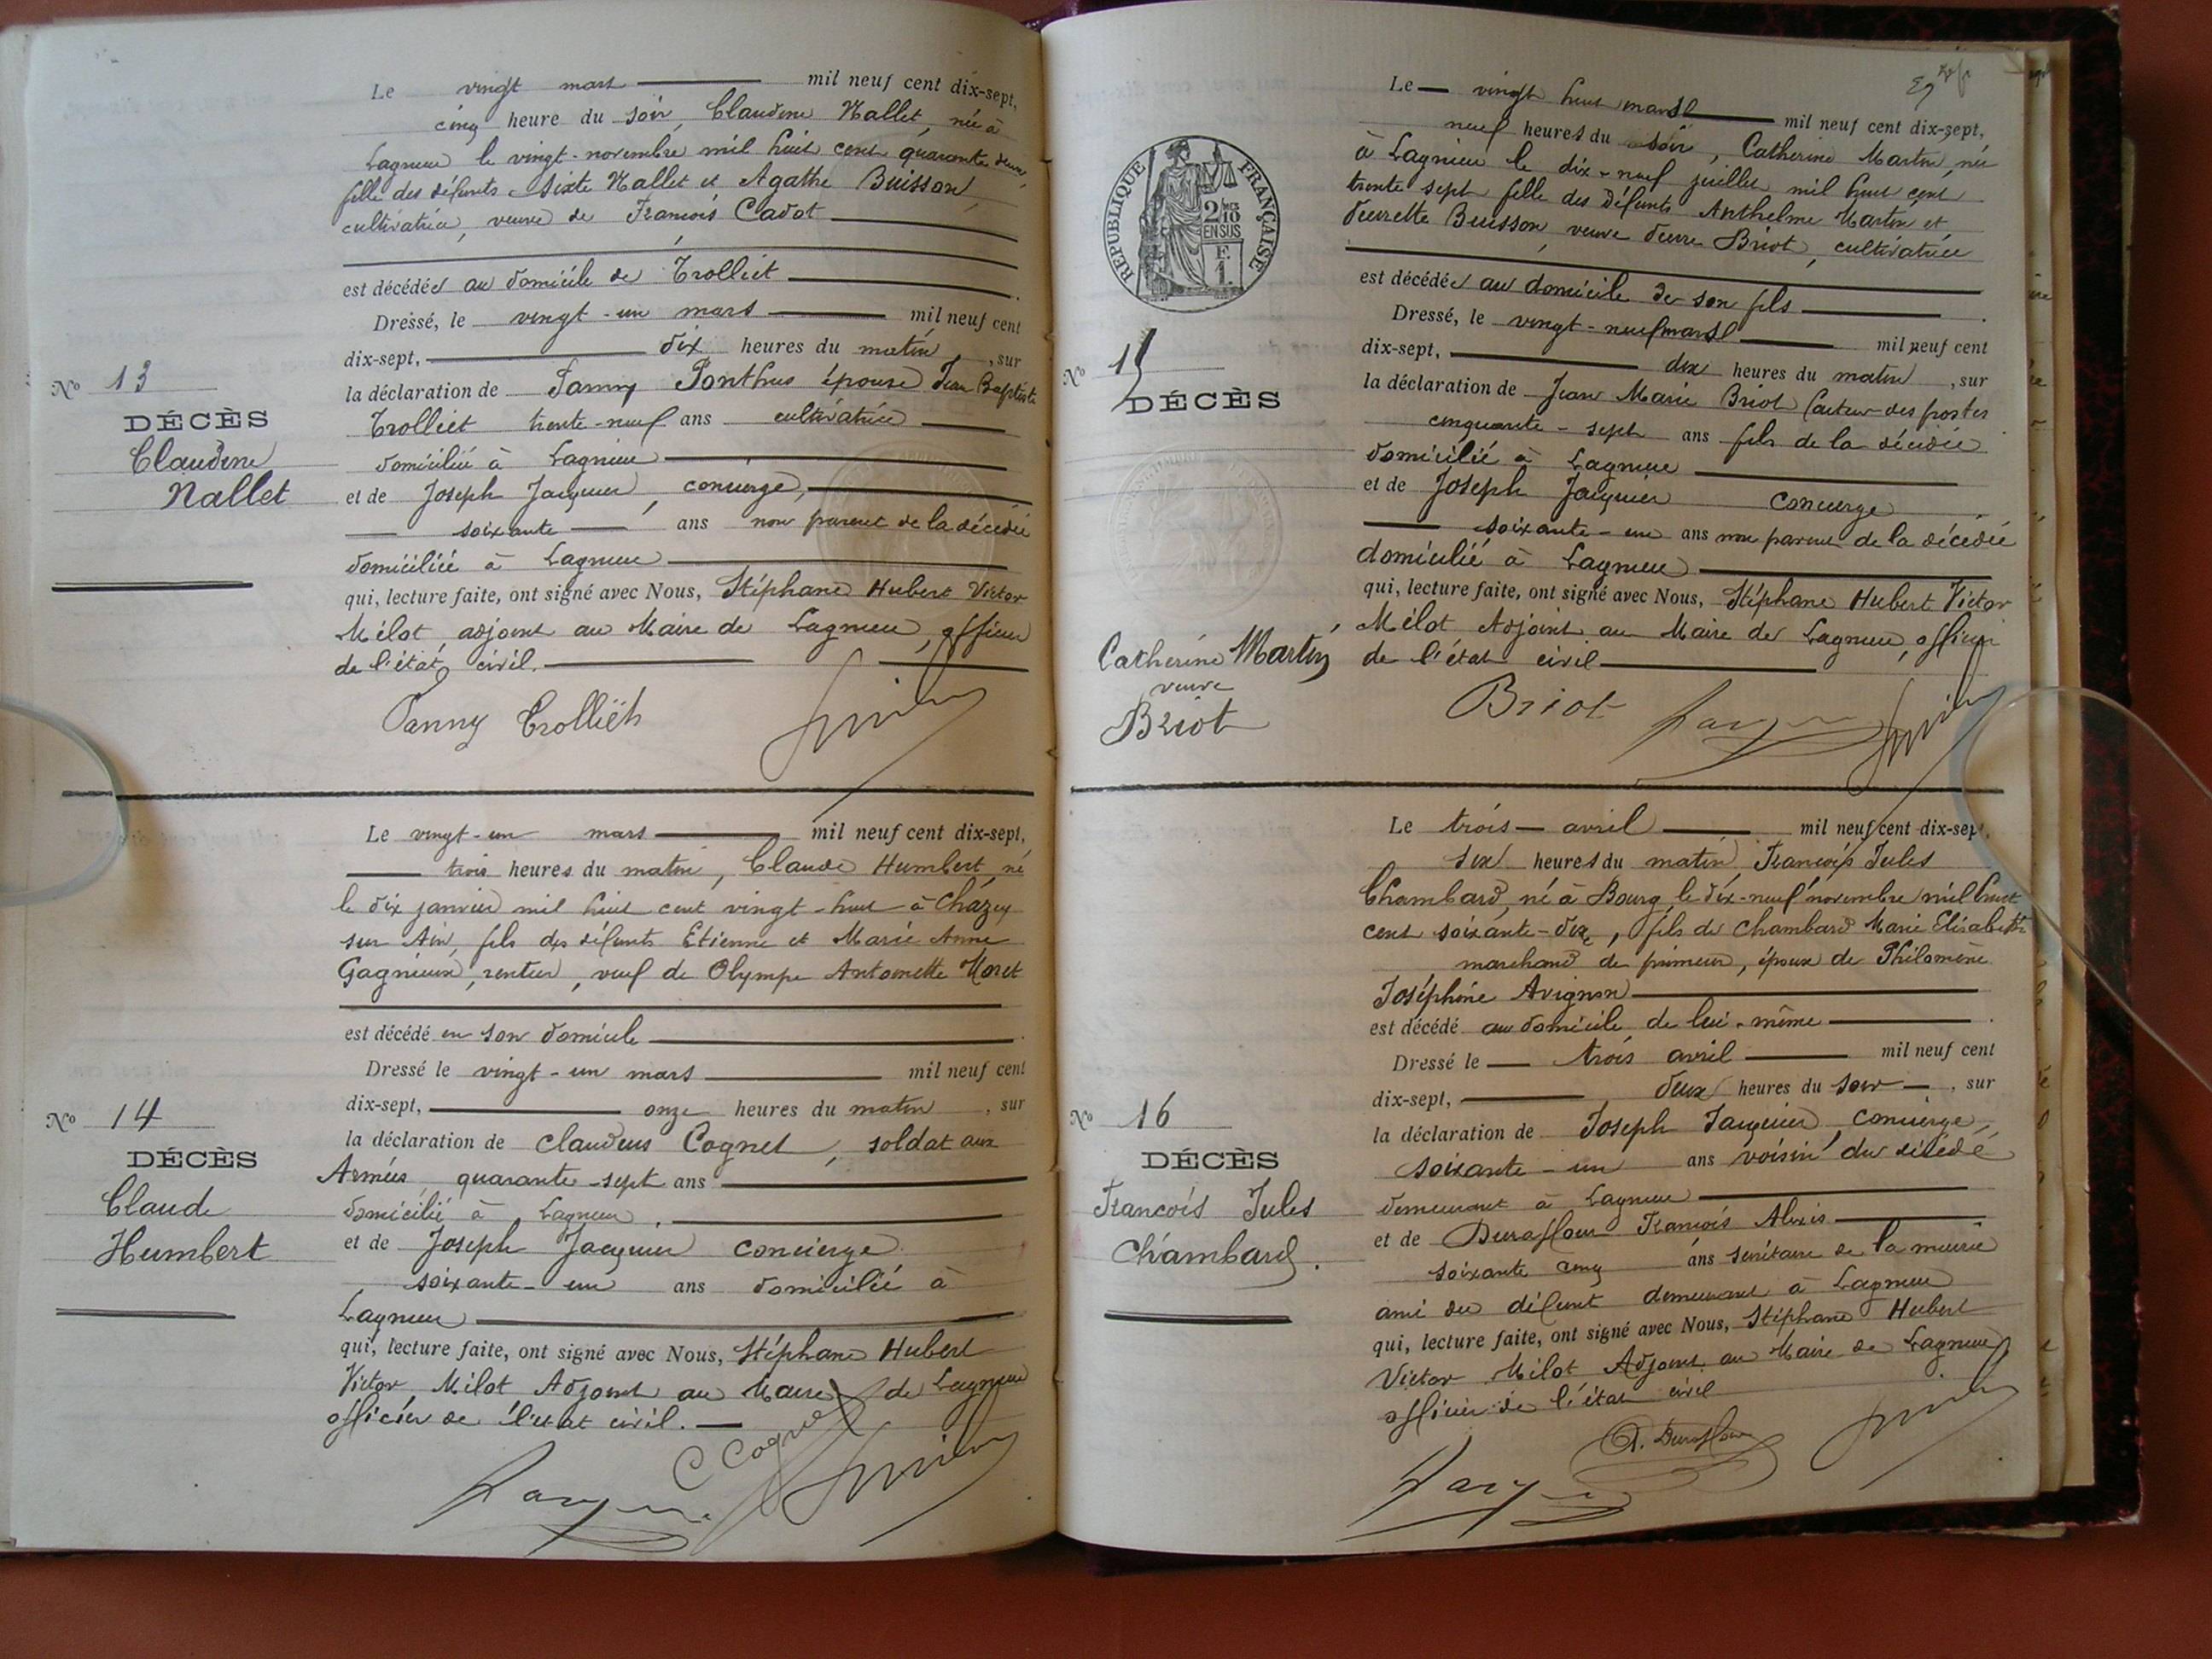 Le vingt mars mil neuf cent dix-sept,
cinq heure du soir, Claudine Nallet, née à
Lagnieu le vingt-novembre mil huit cent quarante deux,
fille des défunts Sixte Nallet et Agathe Buisson,
cultivatrice, veuve de François Cadot
est décédée au domicile de Trolliet
Dressé, le vingt-un mars mil neuf cent
dix-sept, dix heures du matin, sur
la déclaration de Fanny Ponthus épouse Jean Baptiste
Trolliet trente-neuf ans cultivatrice
domiciliée à Lagnieu
et de Joseph Jacquier, concierge,
soixante ans non parent de la décédée
domiciliié à Lagnieu
qui, lecture faite, ont signé avec Nous, Stéphane Hubert Victor
Milot adjoint au Maire de Lagnieu, officier
de l'état civil.
Fanny Trolliet
No 13
DÉCÈS
Claudine
Nallet
Le vingt-un mars mil neuf cent dix-sept,
trois heures du matin, Claude Humbert, né
le dix janvier mil huit cent vingt-huit à Chazey
sur Ain, fils des défunts Etienne et Marie Anne
Gagnieux, rentier, veuf de Olympe Antoinette Moret
est décédé en son domicile
Dressé le vingt-un mars mil neuf cent
dix-sept, onze heures du matin, sur
la déclaration de Claudius Cognet, soldat aux
Armées quarante-sept ans
domicilié à Lagnieu.
et de Joseph Jacquier concierge
soixante-un ans domicilié à
Lagnieu
qui, lecture faite, ont signé avec Nous, Stéphane Hubert
Victor Milot Adjoint au Maire de Lagnieu
officier de l'état civil.
C Cognet
No 14
DÉCÈS
Claude
Humbert
Le vingt huit mars mil neuf cent dix-sept,
neuf heures du soir, Catherine Martin, née
à Lagnieu le dix-neuf juillet mil huit cent
trente sept fille des défunts Anthelme Martin et
Pierrette Buisson, veuve Pierre Briot, cultivatrice
est décédée au domicile de son fils
Dressé, le vingt-neuf mars mil neuf cent
dix-sept, dix heures du matin, sur
la déclaration de Jean Marie Briot facteur des postes
cinquante-sept ans fils de la décédée
domicilié à Lagnieu
et de Joseph Jacquier concierge
soixante-un ans non parent de la décédée
domicilié à Lagnieu
qui, lecture faite, ont signé avec Nous, Stéphane Hubert Victor
Milot Adjoint au Maire de Lagnieu, officier
de l'état civil
Briot
RÉPUBLIQUE FRANÇAISE
2/10 EN SUS
No 15
DÉCÈS
Catherine Martin,
veuve
Briot
Le trois avril mil neuf cent dix-sept,
six heures du matin, François Jules
Chambard, né à Bourg le dix-neuf novembre mil huit
cent soixante-dix, fils de Chambard Marie Elisabeth
marchand de primeur, époux de Philomène
Joséphine Avignon
est décédé au domicile de lui-même
Dressé le trois avril mil neuf cent
dix-sept, deux heures du soir, sur
la déclaration de Joseph Jacquier, concierge,
soixante-un ans voisin du décédé
demeurant à Lagnieu
et de Duraflour François Alexis
soixante cinq ans secrétaire de la mairie
ami du défunt demeurant à Lagnieu
qui, lecture faite, ont signé avec Nous, Stéphane Hubert
Victor Milot Adjoint au Maire de Lagnieu
officier de l'état civil
A. Duraflour
No 16
DÉCÈS
François Jules
Chambard.